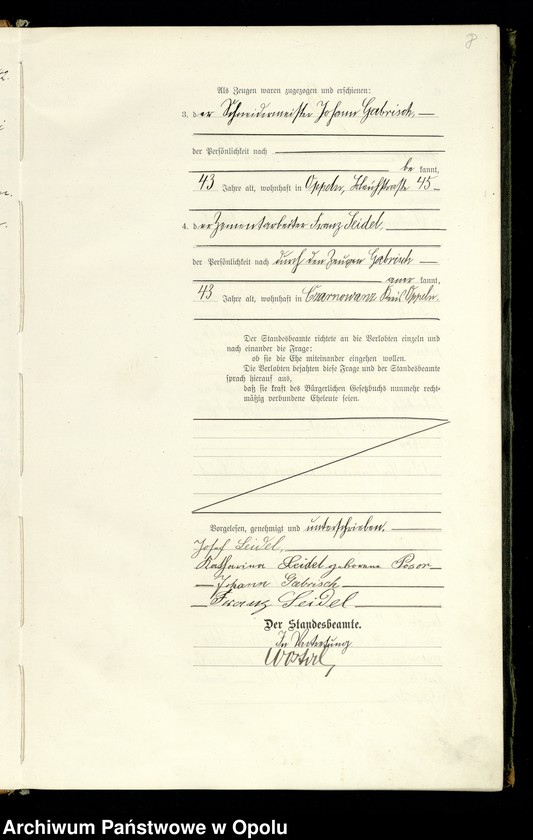 8
Als Zeugen waren zugezogen und erschienen:
3. der Schneidermeister Johann Gabrisch,
der Persönlichkeit nach
be kannt,
43 Jahre alt, wohnhaft in Oppeln, 45
4. der Zementarbeiter Franz Seidel,
der Persönlichkeit nach durch den Zeugen Gabrisch
aner kannt,
43 Jahre alt, wohnhaft in Czarnowanz Kreis Oppeln.
Der Standesbeamte richtete an die Verlobten einzeln und
nach einander die Frage:
ob sie die Ehe miteinander eingehen wollen.
Die Verlobten bejahten diese Frage und der Standesbeamte
sprach hierauf aus,
daß sie kraft des Bürgerlichen Gesetzbuchs nunmehr recht-
mäßig verbundene Eheleute seien.
Vorgelesen, genehmigt und unterschrieben.
Josef Seidel,
Katharina Seidel geborene
Johann Gabrisch
Franz Seidel
Der Standesbeamte.
In Vertretung
Archiwum Państwowe w Opolu